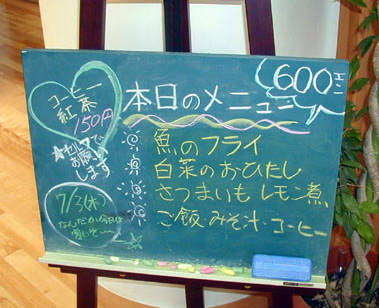 本日のメニュー
600円
魚のフライ
白菜のおひたし
さつまいもレモン煮
ご飯・みそ汁・コーヒー
コーヒー
紅茶
150円
お願い
します
7/3(木)
なんだか今日は